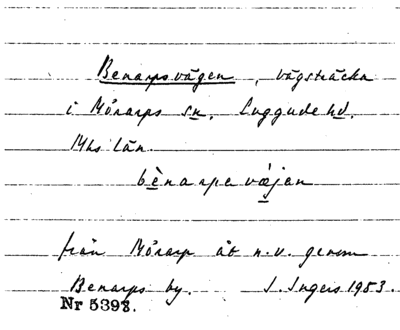 Benarpsvägen, vägsträcka
i Mörarps sn. Luggude hd.
Mhs län.
bènarpsvæjen
från Mörarp åt n.v. genom
Benarps by. I. Ingers 1953.
Nr 5398.